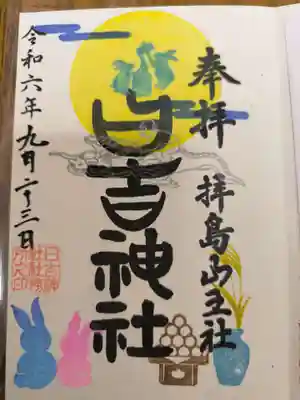 奉拝 拝島山王社
日吉神社
令和六年九月二十三日